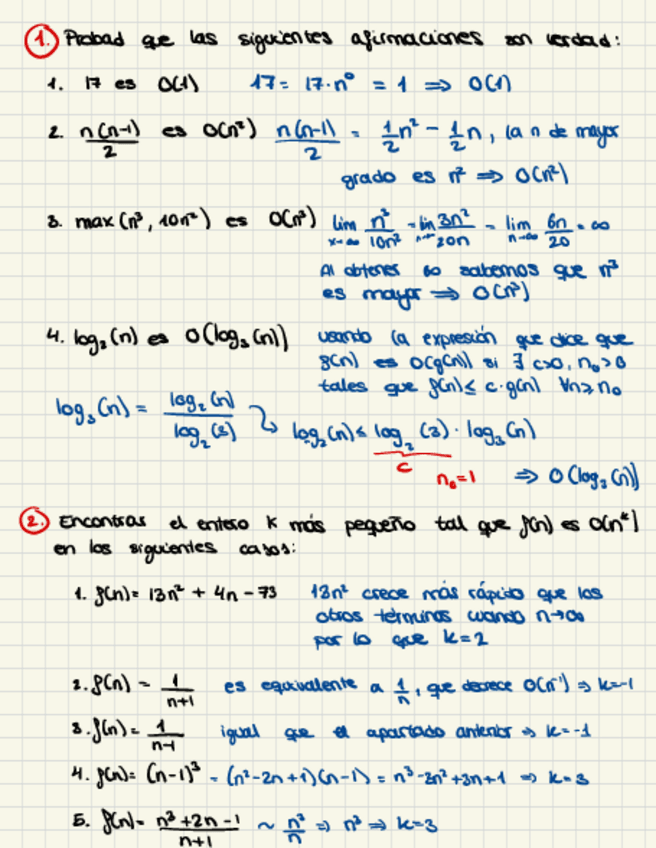 1. Probad que las siguientes afirmaciones son verdad:
1. 17 es O(1) 17 = 17·n⁰ = 1 ⇒ O(1)
2. n(n-1)/2 es O(n²) n(n-1)/2 = 1/2 n² - 1/2 n, la n de mayor
grado es n² ⇒ O(n²)
3. max(n³, 10n²) es O(n³) lim x→∞ n³/10n² = lim n→∞ 3n²/20n = lim n→∞ 6n/20 = ∞
Al obtener ∞ sabemos que n³
es mayor ⇒ O(n³)
4. log₂(n) es O(log₃(n)) usando la expresión que dice que
f(n) es O(g(n)) si ∃ c>0, n₀>0
tales que f(n) ≤ c·g(n) ∀n≥n₀
log₃(n) = log₂(n)/log₂(3) log₂(n) ≤ log₂(3)·log₃(n)
c n₀=1 ⇒ O(log₃(n))
2. Encontrar el entero k más pequeño tal que f(n) es O(nᵏ)
en los siguientes casos:
1. f(n) = 13n² + 4n - 73 13n² crece más rápido que los
otros términos cuando n→∞
por lo que k=2
2. f(n) = 1/(n+1) es equivalente a 1/n, que decrece O(n⁻¹) ⇒ k=-1
3. f(n) = 1/(n-1) igual que el apartado anterior ⇒ k=-1
4. f(n) = (n-1)³ = (n²-2n+1)(n-1) = n³-3n²+3n+1 ⇒ k=3
5. f(n) = (n³+2n-1)/(n+1) ~ n³/n ⇒ n³ ⇒ k=3